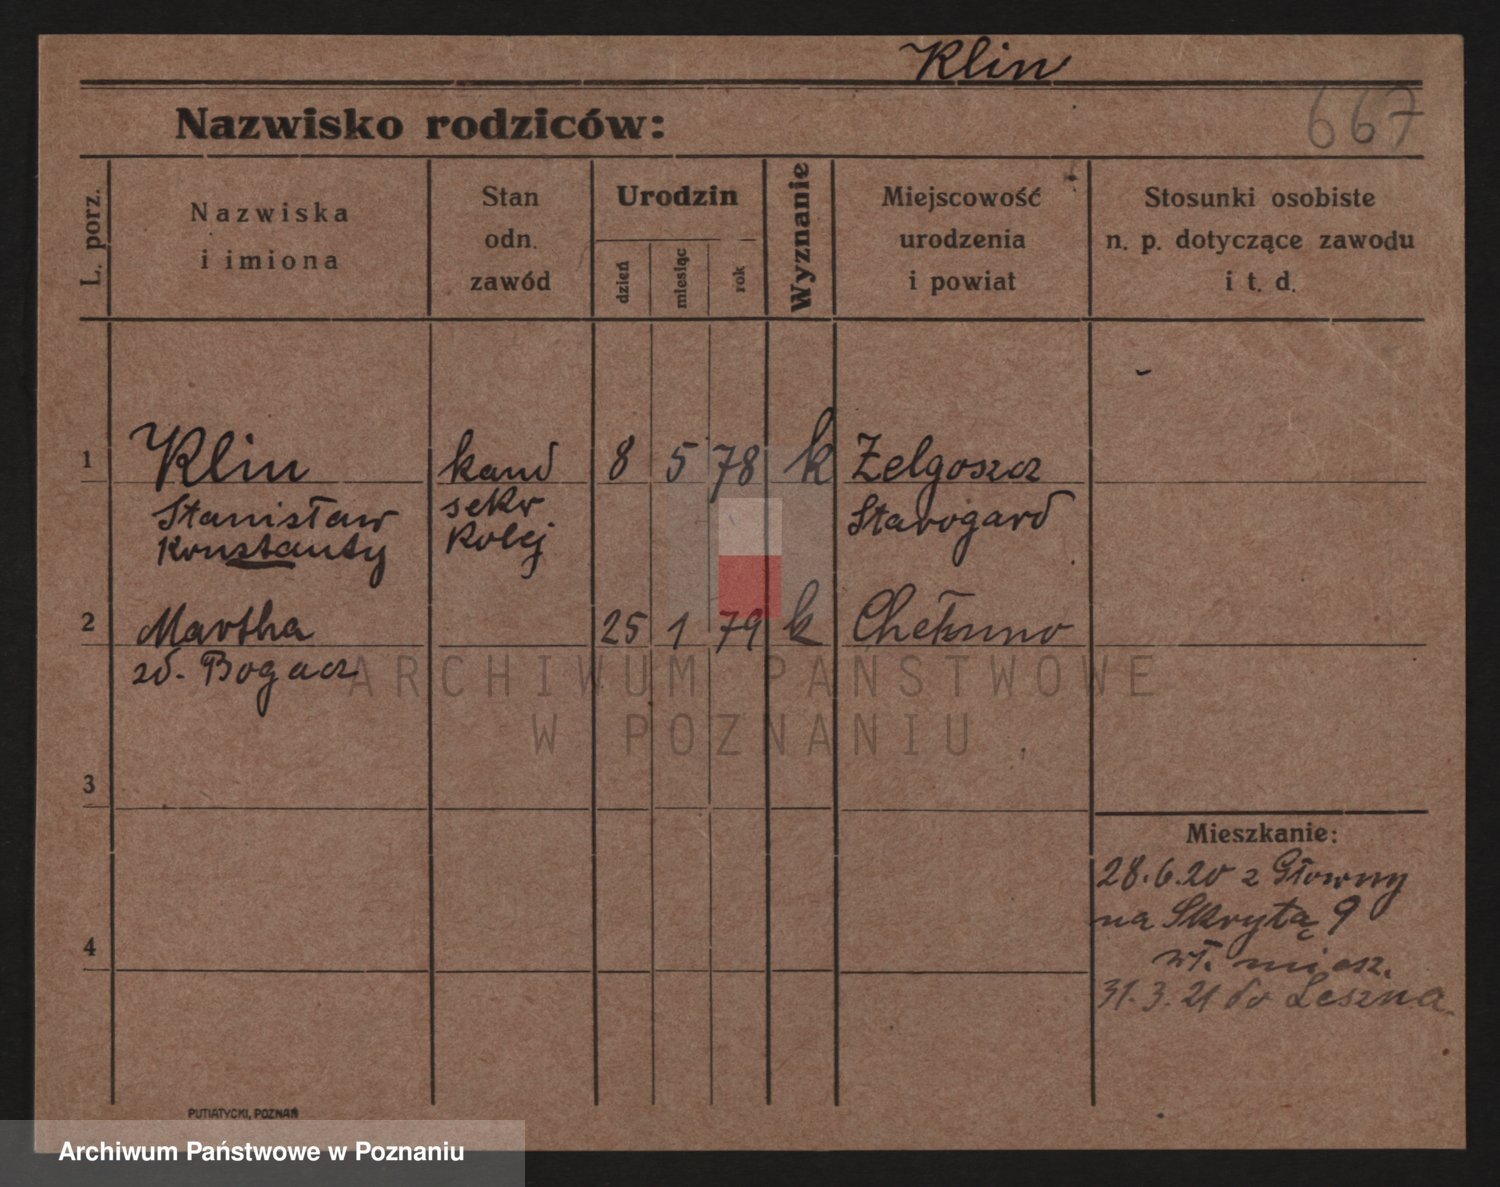 Klin
Nazwisko rodziców:
667
L. porz.
Nazwiska
i imiona
Stan
odn.
zawód
Urodzin
dzień
miesiąc
rok
Wyznanie
Miejscowość
urodzenia
i powiat
Stosunki osobiste
n. p. dotyczące zawodu
i t. d.
1 Klin kand 8 5 78 k Zelgoszcz
Stanisław sekr Starogard
Konstanty kolej
2 Martha 25 1 79 k Chełmno
zd. Bogacz
ARCHIWUM PAŃSTWOWE
W POZNANIU
3
Mieszkanie:
28.6.20 z Głowny
na Skrytą 9
4
wł. miesz.
31.3.21 do Leszna
PUTIATYCKI, POZNAŃ
Archiwum Państwowe w Poznaniu